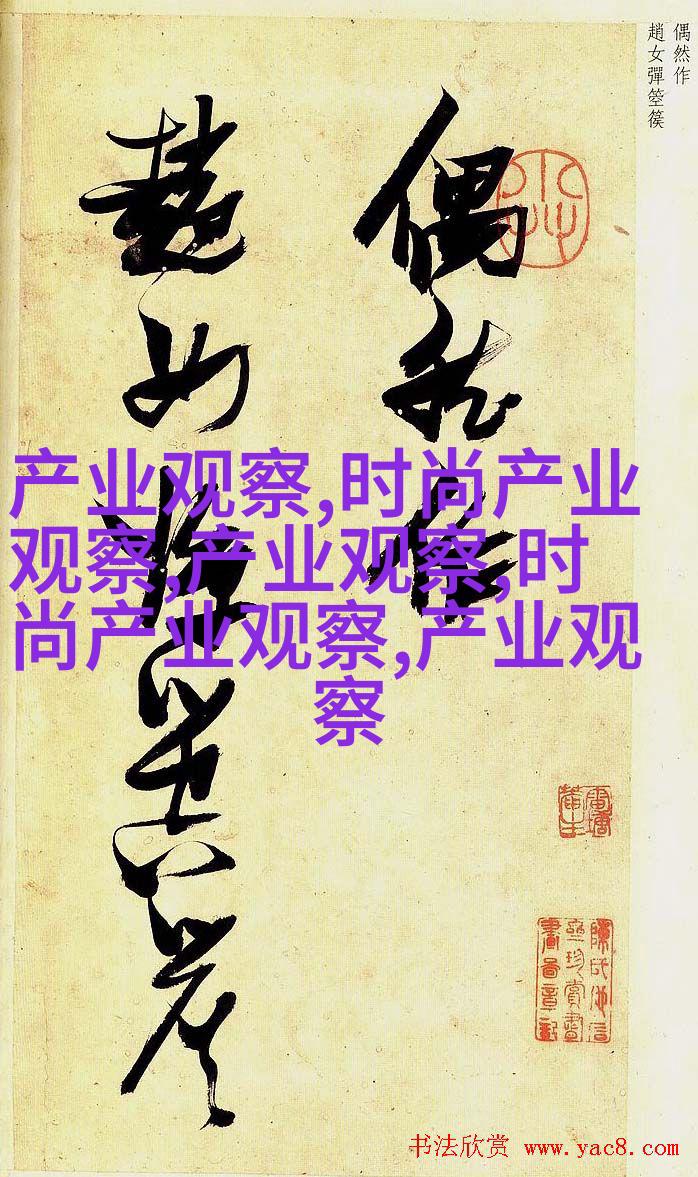 偶然作
趙女彈箜篌
偶然作
趙女彈箜篌
产业观察,时尚产业
观察,产业观察,时
尚产业观察,产业观
察
书法欣赏 www.yac8.com